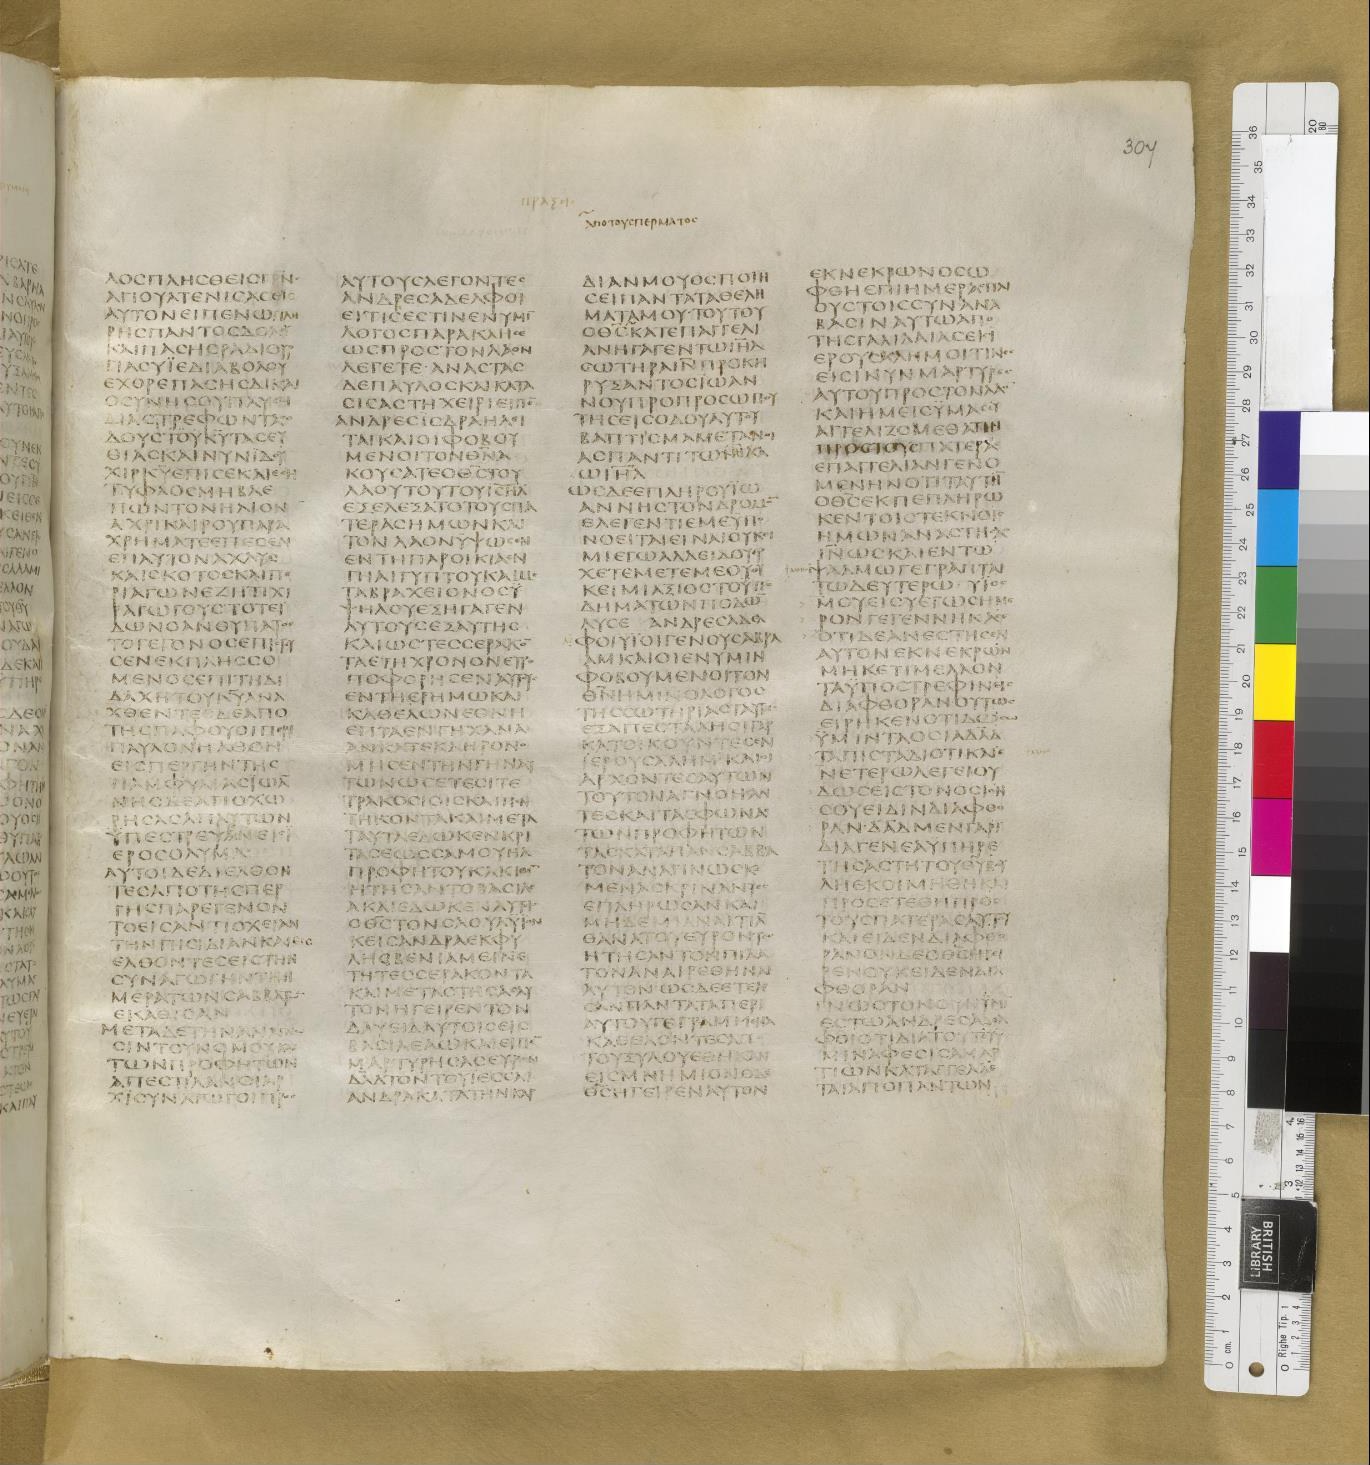 304
ΠΡΑΞΙϹ
ΑΠΟΤΟΥϹΠΕΡΜΑΤΟϹ
ΛΟϹΠΛΗϹΘΕΙϹΠΝ
ΑΓΙΟΥΑΤΕΝΙϹΑϹΕΙϹ
ΑΥΤΟΝΕΙΠΕΝΩΠΛΗ
ΡΗϹΠΑΝΤΟϹΔΟΛΟΥ
ΚΑΙΠΑϹΗϹΡΑΔΙΟΥΡ
ΓΙΑϹΥΪΕΔΙΑΒΟΛΟΥ
ΕΧΘΡΕΠΑϹΗϹΔΙΚΑΙ
ΟϹΥΝΗϹΟΥΠΑΥϹΗ
ΔΙΑϹΤΡΕΦΩΝΤΑϹ
ΟΔΟΥϹΤΟΥΚΥΤΑϹΕΥ
ΘΙΑϹΚΑΙΝΥΝΙΔΟΥ
ΧΙΡΚΥΕΠΙϹΕΚΑΙΕϹΗ
ΤΥΦΛΟϹΜΗΒΛΕ
ΠΩΝΤΟΝΗΛΙΟΝ
ΑΧΡΙΚΑΙΡΟΥΠΑΡΑ
ΧΡΗΜΑΤΕΕΠΕϹΕΝ
ΕΠΑΥΤΟΝΑΧΛΥϹ
ΚΑΙϹΚΟΤΟϹΚΑΙΠΕ
ΡΙΑΓΩΝΕΖΗΤΙΧΙ
ΡΑΓΩΓΟΥϹΤΟΤΕΪ
ΔΩΝΟΑΝΘΥΠΑΤΟϹ
ΤΟΓΕΓΟΝΟϹΕΠΙϹΤΕΥ
ϹΕΝΕΚΠΛΗϹϹΟ
ΜΕΝΟϹΕΠΙΤΗΔΙ
ΔΑΧΗΤΟΥΚΥΑΝΑ
ΧΘΕΝΤΕϹΔΕΑΠΟ
ΤΗϹΠΑΦΟΥΟΙΠΕΡΙ
ΠΑΥΛΟΝΗΛΘΟΝ
ΕΙϹΠΕΡΓΗΝΤΗϹ
ΠΑΜΦΥΛΙΑϹΪΩΑ
ΝΗϹΔΕΑΠΟΧΩ
ΡΗϹΑϹΑΠΑΥΤΩΝ
ΫΠΕϹΤΡΕΨΕΝΕΙϹΪ
ΕΡΟϹΟΛΥΜΑ
ΑΥΤΟΙΔΕΔΙΕΛΘΟΝ
ΤΕϹΑΠΟΤΗϹΠΕΡ
ΓΗϹΠΑΡΕΓΕΝΟΝ
ΤΟΕΙϹΑΝΤΙΟΧΕΙΑΝ
ΤΗΝΠΙϹΙΔΙΑΝΚΑΙΕΙϹ
ΕΛΘΟΝΤΕϹΕΙϹΤΗΝ
ϹΥΝΑΓΩΓΗΝΤΗΗ
ΜΕΡΑΤΩΝϹΑΒΒΑΤΩ
ΕΚΑΘΙϹΑΝ
ΜΕΤΑΔΕΤΗΝΑΝΑΓΝΩ
ϹΙΝΤΟΥΝΟΜΟΥΚΑΙ
ΤΩΝΠΡΟΦΗΤΩΝ
ΑΠΕϹΤΙΛΑΝΟΙΑΡ
ΧΙϹΥΝΑΓΩΓΟΙΠΡΟϹ
ΑΥΤΟΥϹΛΕΓΟΝΤΕϹ
ΑΝΔΡΕϹΑΔΕΛΦΟΙ
ΕΙΤΙϹΕϹΤΙΝΕΝΥΜΙ
ΛΟΓΟϹΠΑΡΑΚΛΗϹΕ
ΩϹΠΡΟϹΤΟΝΛΑΟΝ
ΛΕΓΕΤΕ·ΑΝΑϹΤΑϹ
ΔΕΠΑΥΛΟϹΚΑΙΚΑΤΑ
ϹΙϹΑϹΤΗΧΕΙΡΙΕΙΠΕ
ΑΝΔΡΕϹΪϹΔΡΑΗΛΙ
ΤΑΙΚΑΙΟΙΦΟΒΟΥ
ΜΕΝΟΙΤΟΝΘΝΑ
ΚΟΥϹΑΤΕΟΘϹΤΟΥ
ΛΑΟΥΤΟΥΤΟΥΙϹΗΛ
ΕΞΕΛΕΞΑΤΟΤΟΥϹΠΑ
ΤΕΡΑϹΗΜΩΝΚΑΙ
ΤΟΝΛΑΟΝΥΨΩϹΕΝ
ΕΝΤΗΠΑΡΟΙΚΙΑΕΝ
ΓΗΑΙΓΥΠΤΟΥΚΑΙΜΕ
ΤΑΒΡΑΧΕΙΟΝΟϹΥ
ΨΗΛΟΥΕΞΗΓΑΓΕΝ
ΑΥΤΟΥϹΕΞΑΥΤΗϹ
ΚΑΙΩϹΤΕϹϹΕΡΑΚΟ
ΤΑΕΤΗΧΡΟΝΟΝΕΤΡΟ
ΠΟΦΟΡΗϹΕΝΑΥΤΟΥϹ
ΕΝΤΗΕΡΗΜΩΚΑΙ
ΚΑΘΕΛΩΝΕΘΝΗ
ΕΠΤΑΕΝΓΗΧΑΝΑ
ΑΝΚΑΤΕΚΛΗΡΟΝΟ
ΜΗϹΕΝΤΗΝΓΗΝΑΥ
ΤΩΝΩϹΕΤΕϹΙΤΕ
ΤΡΑΚΟϹΙΟΙϹΚΑΙΠΕΝ
ΤΗΚΟΝΤΑΚΑΙΜΕΤΑ
ΤΑΥΤΑΕΔΩΚΕΝΚΡΙ
ΤΑϹΕΩϹϹΑΜΟΥΗΛ
ΠΡΟΦΗΤΟΥΚΑΚΙΘΕ
ΗΤΗϹΑΝΤΟΒΑϹΙΛΕ
ΑΚΑΙΕΔΩΚΕΝΑΥΤΟΙϹ
ΟΘϹΤΟΝϹΑΟΥΛΥΙΟΝ
ΚΕΙϹΑΝΔΡΑΕΚΦΥ
ΛΗϹΒΕΝΙΑΜΕΙΝΕ
ΤΗΤΕϹϹΕΡΑΚΟΝΤΑ
ΚΑΙΜΕΤΑϹΤΗϹΑϹΑΥ
ΤΟΝΗΓΕΙΡΕΝΤΟΝ
ΔΑΥΕΙΔΑΥΤΟΙϹΕΙϹ
ΒΑϹΙΛΕΑΩΚΑΙΕΙΠΕ
ΜΑΡΤΥΡΗϹΑϹΕΥΡΟΝ
ΔΑΔΤΟΝΤΟΥΙΕϹϹΑΙ
ΑΝΔΡΑΚΑΤΑΤΗΝΚΑΡ
ΔΙΑΝΜΟΥΟϹΠΟΙΗ
ϹΕΙΠΑΝΤΑΤΑΘΕΛΗ
ΜΑΤΑΜΟΥ·ΤΟΥΤΟΥ
ΟΘϹΚΑΤΕΠΑΓΓΕΛΙ
ΑΝΗΓΑΓΕΝΤΩΙΗΛ
ϹΩΤΗΡΑΙΝΠΡΟΚΗ
ΡΥΞΑΝΤΟϹΪΩΑΝ
ΝΟΥΠΡΟΠΡΟϹΩΠΟΥ
ΤΗϹΕΙϹΟΔΟΥΑΥΤΟΥ
ΒΑΠΤΙϹΜΑΜΕΤΑΝΟΙ
ΑϹΠΑΝΤΙΤΩΛΑΩ
ΩΙΗΛ
ΩϹΔΕΕΠΛΗΡΟΥΪΩ
ΑΝΝΗϹΤΟΝΔΡΟΜΟ
ΕΛΕΓΕΝΤΙΕΜΕΥΠΟ
ΝΟΕΙΤΑΙΕΙΝΑΙΟΥΚΙ
ΜΙΕΓΩΑΛΛΕΙΔΟΥΕΡ
ΧΕΤΕΜΕΤΕΜΕΟΥΟΥ
ΚΕΙΜΙΑΞΙΟϹΤΟΥΠΟ
ΔΗΜΑΤΩΝΠΟΔΩ
ΛΥϹΕ ΑΝΔΡΕϹΑΔΕ
ΦΟΙΥΪΟΙΓΕΝΟΥϹΑΒΡΑ
ΑΜΚΑΙΟΙΕΝΥΜΙΝ
ΦΟΒΟΥΜΕΝΟΙΤΟΝ
ΘΝΗΜΙΝΟΛΟΓΟϹ
ΤΗϹϹΩΤΗΡΙΑϹΤΑΥΤΗ
ΕΞΑΠΕϹΤΑΛΗΟΙΓΑΡ
ΚΑΤΟΙΚΟΥΝΤΕϹΕΝ
ΪΕΡΟΥϹΑΛΗΜΚΑΙΟΙ
ΑΡΧΟΝΤΕϹΑΥΤΩΝ
ΤΟΥΤΟΝΑΓΝΟΗϹΑΝ
ΤΕϹΚΑΙΤΑϹΦΩΝΑϹ
ΤΩΝΠΡΟΦΗΤΩΝ
ΤΑϹΚΑΤΑΠΑΝϹΑΒΒΑ
ΤΟΝΑΝΑΓΙΝΩϹΚΟ
ΜΕΝΑϹΚΡΙΝΑΝΤΕϹ
ΕΠΛΗΡΩϹΑΝΚΑΙ
ΜΗΔΕΜΙΑΝΑΙΤΙΑ
ΘΑΝΑΤΟΥΕΥΡΟΝΤΕϹ
ΗΤΗϹΑΝΤΟΝΠΙΛΑ
ΤΟΝΑΝΑΙΡΕΘΗΝΑΙ
ΑΥΤΟΝΩϹΔΕΕΤΕΛΕ
ϹΑΝΠΑΝΤΑΤΑΠΕΡΙ
ΑΥΤΟΥΓΕΓΡΑΜΜΕΝΑ
ΚΑΘΕΛΟΝΤΕϹΑΠΟ
ΤΟΥΞΥΛΟΥΕΘΗΚΑΝ
ΕΙϹΜΝΗΜΙΟΝΟΔΕ
ΘϹΗΓΕΙΡΕΝΑΥΤΟΝ
ΕΚΝΕΚΡΩΝΟϹΩ
ΦΘΗΕΠΙΗΜΕΡΑϹΠΛΙ
ΟΥϹΤΟΙϹϹΥΝΑΝΑ
ΒΑϹΙΝΑΥΤΩΑΠΟ
ΤΗϹΓΑΛΙΛΑΙΑϹΕΙϹΪ
ΕΡΟΥϹΑΛΗΜΟΙΤΙΝΕϹ
ΕΙϹΙΝΥΝΜΑΡΤΥΡΕϹ
ΑΥΤΟΥΠΡΟϹΤΟΝΛΑΟ
ΚΑΙΗΜΕΙϹΥΜΑϹΕΥ
ΑΓΓΕΛΙΖΟΜΕΘΑΤΗΝ
ΠΡΟϹΤΟΥϹΠΑΤΕΡΑϹ
ΕΠΑΓΓΕΛΙΑΝΓΕΝΟ
ΜΕΝΗΝΟΤΙΤΑΥΤΗ
ΟΘϹΕΚΠΕΠΛΗΡΩ
ΚΕΝΤΟΙϹΤΕΚΝΟΙϹ
ΗΜΩΝΑΝΑϹΤΗϹΑϹ
ΙΝΩϹΚΑΙΕΝΤΩ
ΨΑΛΜΩΓΕΓΡΑΠΤΑΙ
ΤΩΔΕΥΤΕΡΩ·ΥΙΟϹ
ΜΟΥΕΙϹΥΕΓΩϹΗΜΕ
ΡΟΝΓΕΓΕΝΝΗΚΑϹΕ
ΟΤΙΔΕΑΝΕϹΤΗϹΕΝ
ΑΥΤΟΝΕΚΝΕΚΡΩΝ
ΜΗΚΕΤΙΜΕΛΛΟΝ
ΤΑΫΠΟϹΤΡΕΦΙΝΕΙϹ
ΔΙΑΦΘΟΡΑΝΟΥΤΩϹ
ΕΙΡΗΚΕΝΟΤΙΔΩϹΩ
ΫΜΙΝΤΑΟϹΙΑΔΑΔ
ΤΑΠΙϹΤΑΔΙΟΤΙΚΑΙΕ
ΝΕΤΕΡΩΛΕΓΕΙΟΥ
ΔΩϹΕΙϹΤΟΝΟϹΙΟΝ
ϹΟΥΕΙΔΙΝΔΙΑΦΘΟ
ΡΑΝ·ΔΑΔΜΕΝΓΑΡΪ
ΔΙΑΓΕΝΕΑΥΠΗΡΕ
ΤΗϹΑϹΤΗΤΟΥΘΥΒΟΥ
ΛΗΕΚΟΙΜΗΘΗΚΑΙ
ΠΡΟϹΕΤΕΘΗΠΡΟϹ
ΤΟΥϹΠΑΤΕΡΑϹΑΥΤΟΥ
ΚΑΙΕΙΔΕΝΔΙΑΦΘΟ
ΡΑΝΟΝΔΕΟΘϹΗΓΕΙ
ΡΕΝΟΥΚΕΙΔΕΝΔΙΑ
ΦΘΟΡΑΝ
ΓΝΩϹΤΟΝΟΥΝΥΜΙ
ΕϹΤΩΑΝΔΡΕϹΑΔΕΛ
ΦΟΙΟΤΙΔΙΑΤΟΥΤΟΥ
ΜΙΝΑΦΕϹΙϹΑΜΑΡ
ΤΙΩΝΚΑΤΑΓΓΕΛΛΕ
ΤΑΙΑΠΟΠΑΝΤΩΝ